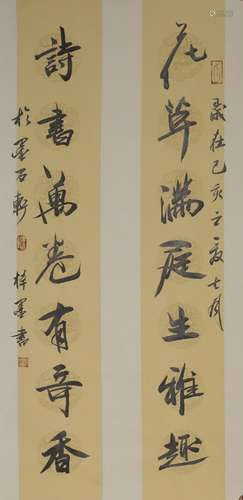 花草滿庭生雅趣
歲在己亥之夏七月
詩書萬卷有奇香
於墨石軒 梓墨書